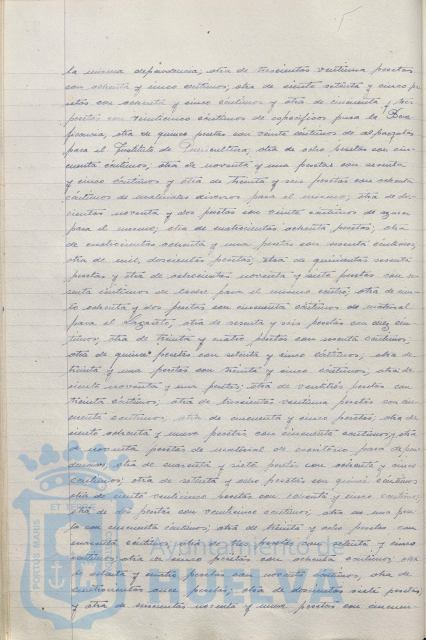 la misma dependencia; otra de trescientas veintiuna pesetas
con ochenta y cinco céntimos; otra de ciento setenta y cinco pe
setas con ochenta y cinco céntimos y otra de cincuenta y seis
pesetas con veinticinco céntimos de específicos para la Bene
ficencia, otra de quince pesetas con veinte céntimos de alpargatas
para el Instituto de Puericultura, otra de ocho pesetas con cin
cuenta céntimos, otra de noventa y una pesetas con
y cinco céntimos y otra de treinta y seis pesetas con ochenta
céntimos de materiales diversos para el mismo; otra de do
cientas noventa y dos pesetas con veinte céntimos de azucar
para el mismo; otra de cuatrocientas ochenta pesetas; otra
de cuatrocientas ochenta y una pesetas con noventa céntimos,
otra de mil doscientas pesetas; otra de quinientas
pesetas y otra de setecientas noventa y siete pesetas con
céntimos de leche para el mismo centro; otra de cien
to ochenta y dos pesetas con cincuenta céntimos de material
para el Lazareto; otra de sesenta y seis pesetas con diez cén
timos; otra de treinta y cuatro pesetas con céntimos;
otra de quince pesetas con setenta y cinco céntimos; otra de
treinta y una pesetas con treinta y cinco céntimos; otra de
ciento noventa y una pesetas; otra de veintitres pesetas con
treinta céntimos; otra de trescientas veintiuna pesetas con cin
cuenta céntimos; otra de cincuenta y cinco pesetas; otra de
ciento ochenta y nueve pesetas con cincuenta céntimos; otra
de noventa pesetas de material de escritorio para depen
dencias; otra de cuarenta y siete pesetas con ochenta y cinco
céntimos; otra de setenta y ocho pesetas con quince céntimos
otra de ciento veinticinco pesetas con ochenta y cinco céntimos;
otra de dos pesetas con veinticinco céntimos; otra de una pese
ta con cincuenta céntimos; otra de treinta y ocho pesetas con
cincuenta céntimos; otra de pesetas con setenta y cinco
céntimos; otra de cinco pesetas con ochenta céntimos; otra
y cuatro pesetas con noventa céntimos, otra de
cuatrocientas once pesetas; otra de doscientas siete pesetas
y otra de seiscientas noventa y nueve pesetas con cincuen
PORTUS MARIS
ET TE
Ayuntamiento de
HUELVA